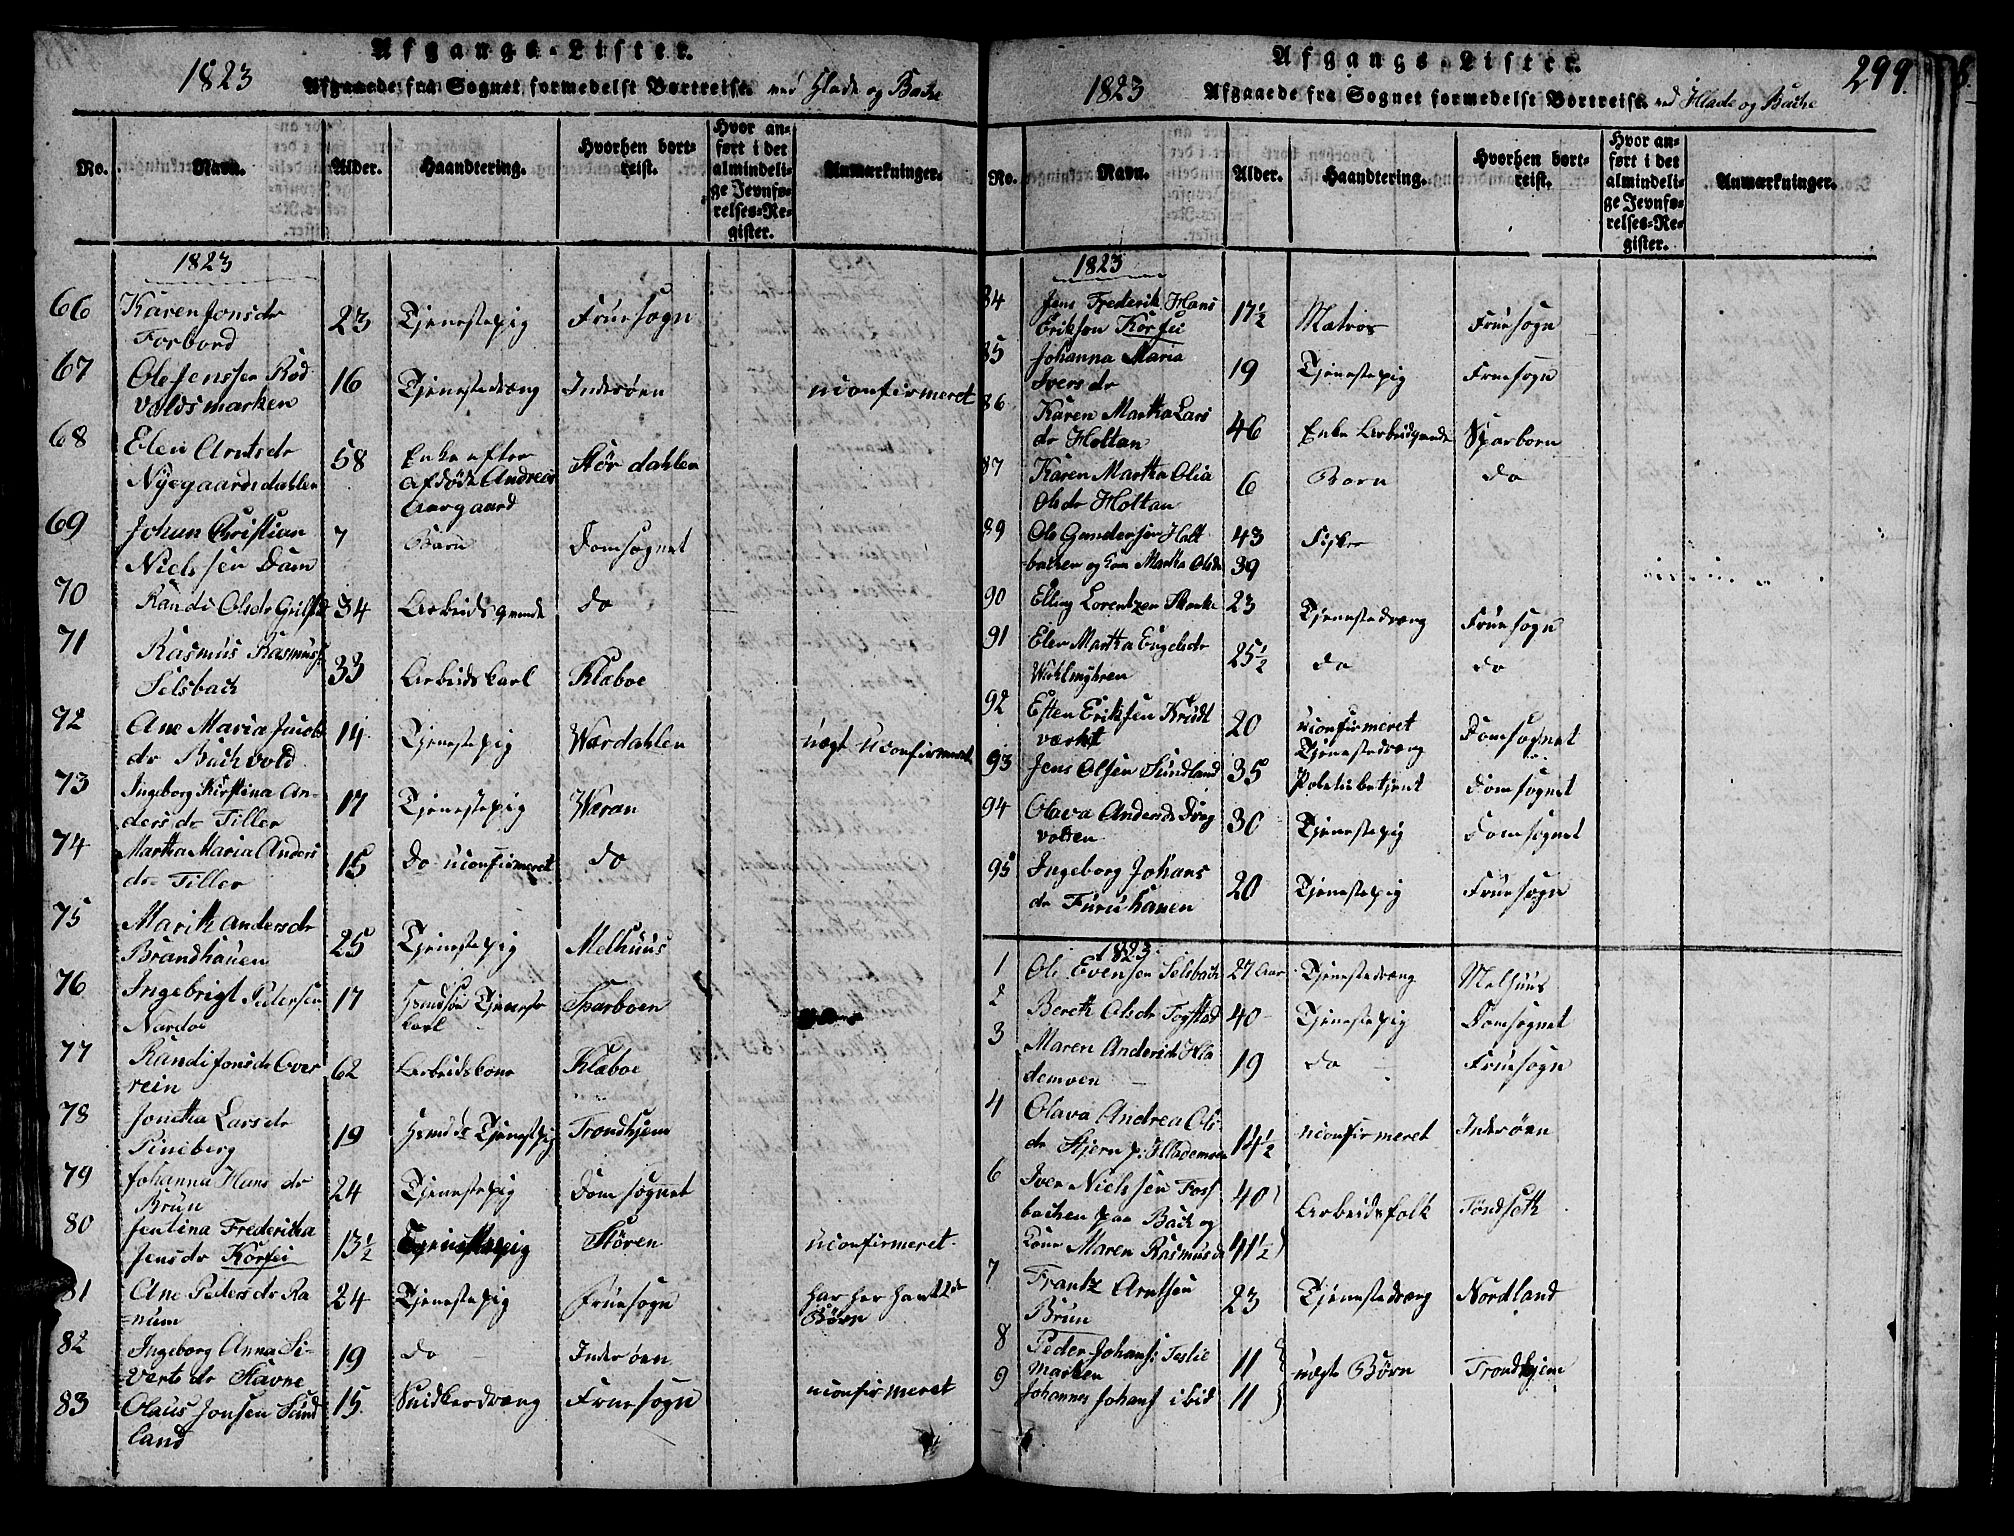 Afgangs-Lister.
1823 Afgaaede fra Sognet formedelst Bortreise. ved Hlade og Bache
No. Navn. Alder. Haandtering. Hvorhen bortreist. Hvor anført i det almindelige Jevnførelses-Register. Anmærkninger.
1823
66 Karen Jonsdr Forbord 23 Tjenestepig Fruesogn
67 Ole Jenssen Rodvoldsmarken 16 Tjenestedræng Inderøen uconfirmeret
68 Elen Arntsdr Nyegaardsdahlen 58 Enke efter afdøde Andreas Aargaard Størdahlen
69 Johan Christian Nielssen Dam 7 Barn Domsognet
70 Randi Olsdr 34 Arbeids do
71 Rasmus Rasmuss: Selsbach 33 Arbeidskarl Klæboe
72 Ane Maria Jacobsdr Bachvold 14 Tjenestepig Wærdahlen uægt uconfirmeret
73 Ingeborg Kirstina Andersdr Tiller 17 Tjenestepig Waran
74 Martha Maria Andersdr Tiller 15 do uconfirmeret do
75 Marith Andersdr Brandhauen 25 Tjenestepig Melhuus
76 Ingebrigt Pedersen Nardoe 17 Tjenestekarl Sparboen
77 Randi Jonsdr Overrein 62 Arbeidskone Klæboe
78 Jonetha Larsdr Pineberg 19 Tjenestpig Trondhjem
79 Johanna Hansdr Brun 24 Tjenestepig Domsognet
80 Jentina Fredericha Jensdr Korfei 13½ Tjenestepig Støren uconfirmeret
81 Ane Pedersdr Ranum 24 Tjenestepig Fruesogn har her havt 2de Børn
82 Ingeborg Anna Sivertsdr Stavne 19 do Inderøen
83 Olaus Jonsen Sundland 15 Snidkerdræng Fruesogn uconfirmeret
Afgangs-Lister.
299
1823 Afgaaede fra Sognet formedelst Bortreise. ved Hlade og Bache
No. Navn. Alder. Haandtering. Hvorhen bortreist. Hvor anført i det almindelige Jevnførelses-Register. Anmærkninger.
1823
84 Jens Frederik Hans Eriksen Korfei 17½ Matros Fruesogn
85 Johanna Maria Iversdr 19 Tjenestepig Fruesogn
86 Karen Martha Larsdr Holtan 46 Enke Sparboen
87 Karen Martha Olia Olsdr Holtan 6 Barn do
89 Ole Gundersen Holtbachen og Kone Martha Olsdr 43 39 Fisker
90 Elling Lorentzen 23 Tjenestedræng Fruesogn
91 Elen Martha Engelsdr Wahlmyhren 25½ do do
92 Esten Eriksen Krudtværket 20 uconfirmeret Tjenestedræng Domsognet
93 Jens Olsen Sundland 35 Politiebetjent Domsognet
94 Olava Andersdr volden 30 Tjenestepig Domsognet
95 Ingeborg Johansdr Furuhauen 20 Tjenestepig Fruesogn
1823
1 Ole Evensen Selsbach 27 Aar Tjenestedræng Melhuus
2 Bereth Olsdr Togstad 40 Tjenestepig Domsognet
3 Maren Andersdr Hlademoen 19 do Fruesogn
4 Olava Andrea Olsdr Stjern p. Hlademoen 14½ uconfirmeret Inderøen
6 Iver Nielssen Fossbachen paa Bach og Kone Maren Rasmusdr 40 41½ Arbeidsfolk Tøndseth
7 Frantz Arntsen Brun 23 Tjenestedræng Nordland
8 Peder Johans: Teslie Marken 11 uægte Børn Trondhjem
9 Johannes Johans ibid 11